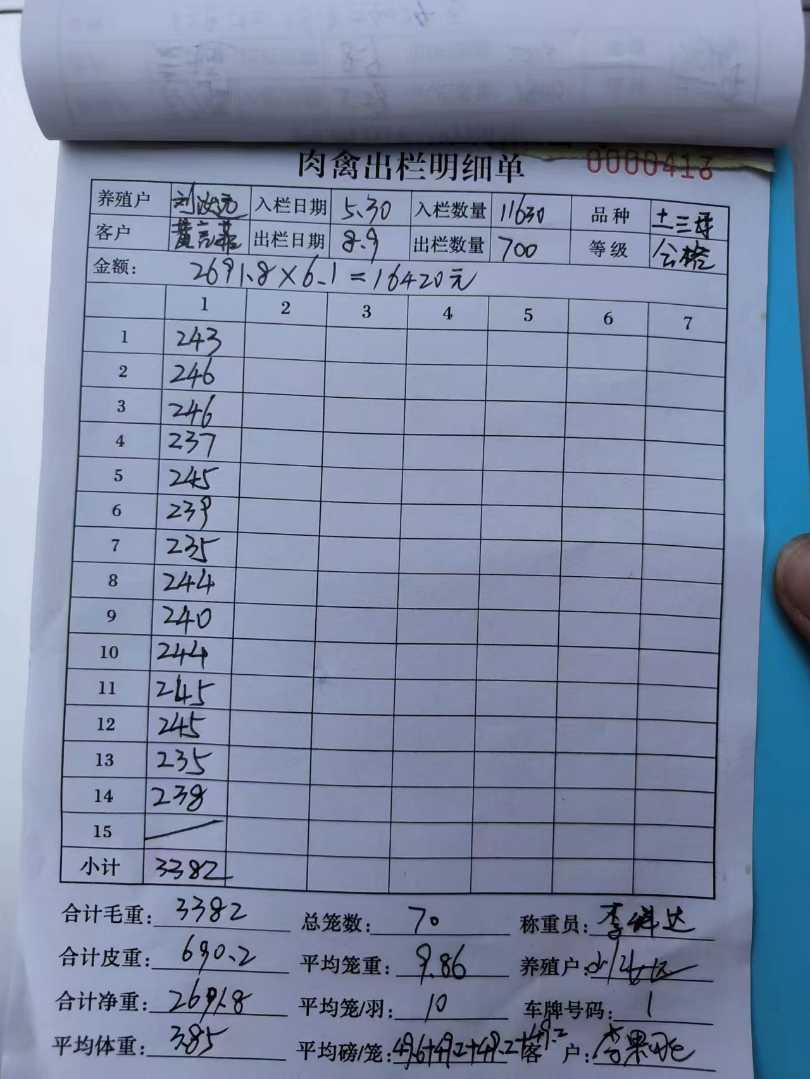 肉禽出栏明细单 0000418
养殖户 入栏日期 5.30 入栏数量 11630 品种
客户 出栏日期 8.9 出栏数量 700 等级
金额: 2691.8×6.1=16420元
1 2 3 4 5 6 7
1 243
2 246
3 246
4 237
5 245
6 239
7 235
8 244
9 240
10 244
11 245
12 245
13 235
14 238
15
小计 3382
合计毛重: 3382 总笼数: 70 称重员: 李 达
合计皮重: 690.2 平均笼重: 9.86 养殖户:
合计净重: 2691.8 平均笼/羽: 10 车牌号码: 1
平均体重: 3.85 平均磅/笼: 49.6+49.2+49.2+49.2 客户: